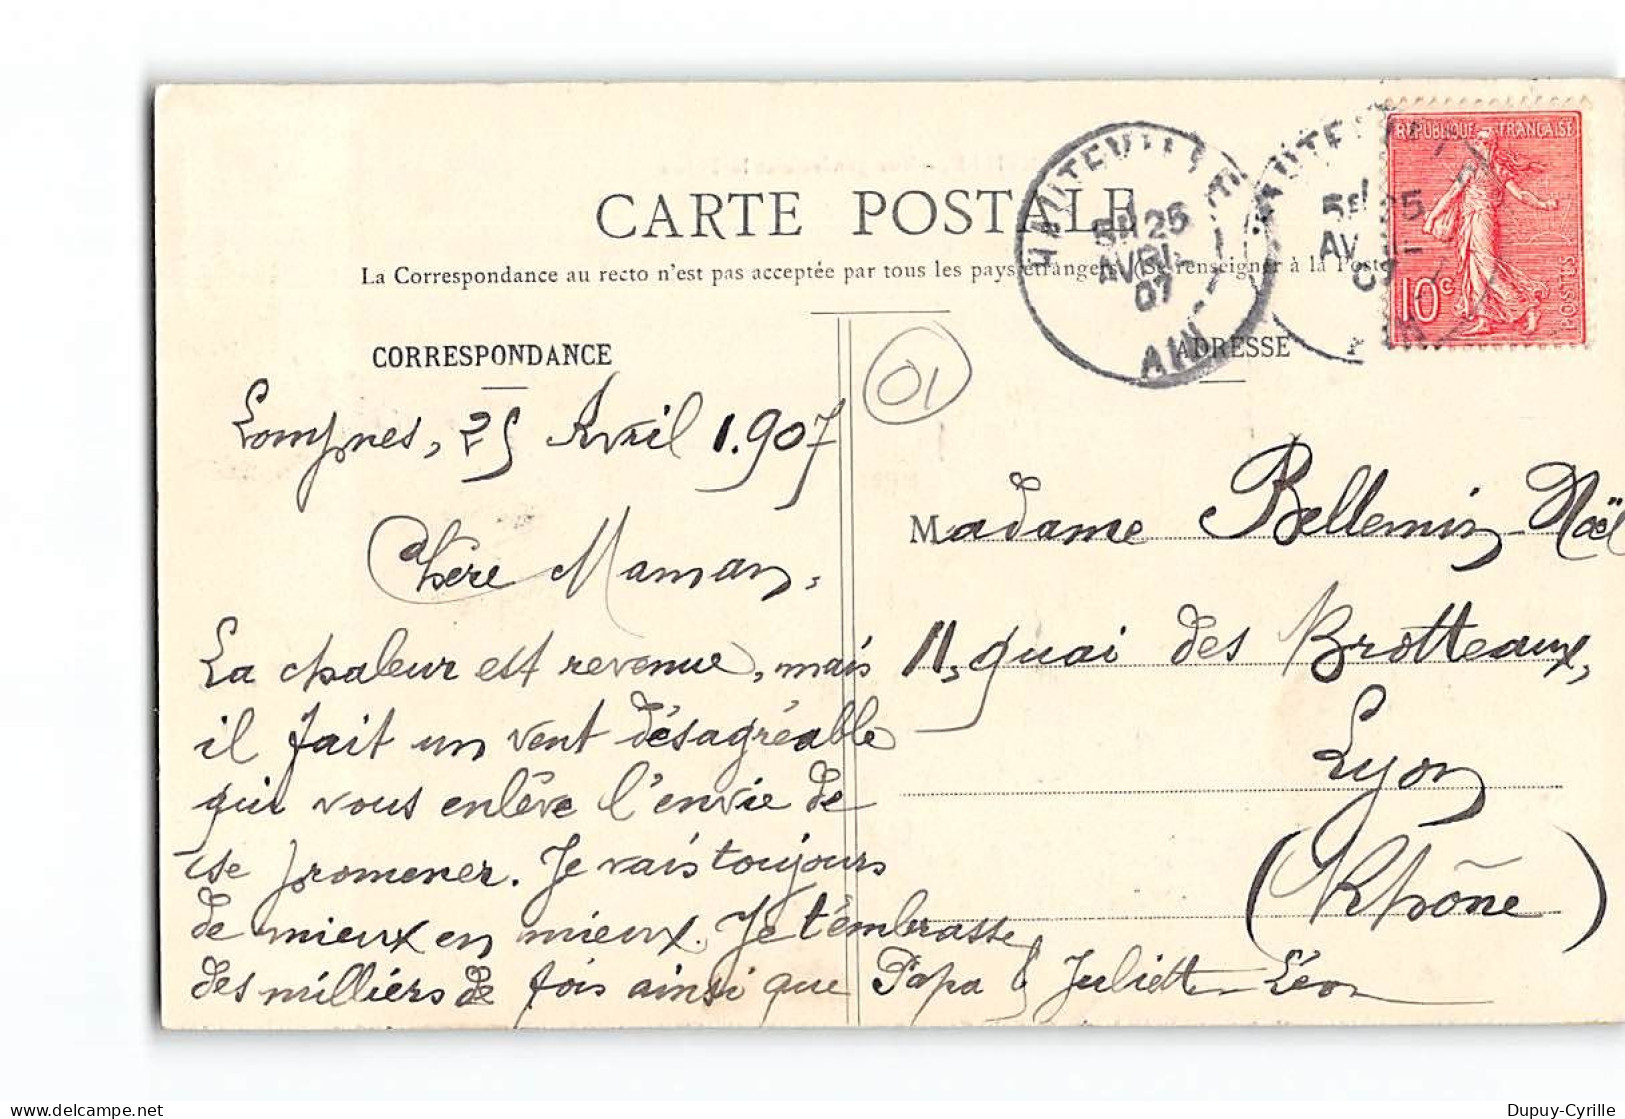 CARTE POSTALE
La Correspondance au recto n'est pas acceptée par tous les pays étrangers. (Se renseigner à la Poste)
HAUTEVILLE
5H 25
AVRIL
07
AIN
HAUTEVILLE
5H 25
AVRIL
07
AIN
REPUBLIQUE FRANÇAISE
10c
POSTES
CORRESPONDANCE
Lompnes, 25 Avril 1.907
Chère Maman,
La chaleur est revenue, mais
il fait un vent désagréable
qui vous enlève l'envie de
se promener. Je vais toujours
de mieux en mieux. Je t'embrasse
des milliers de fois ainsi que Papa & Juliette Léon
01
ADRESSE
Madame Bellemin Noël
11, quai des Brotteaux,
Lyon
(Rhône)
Dupuy-Cyrille